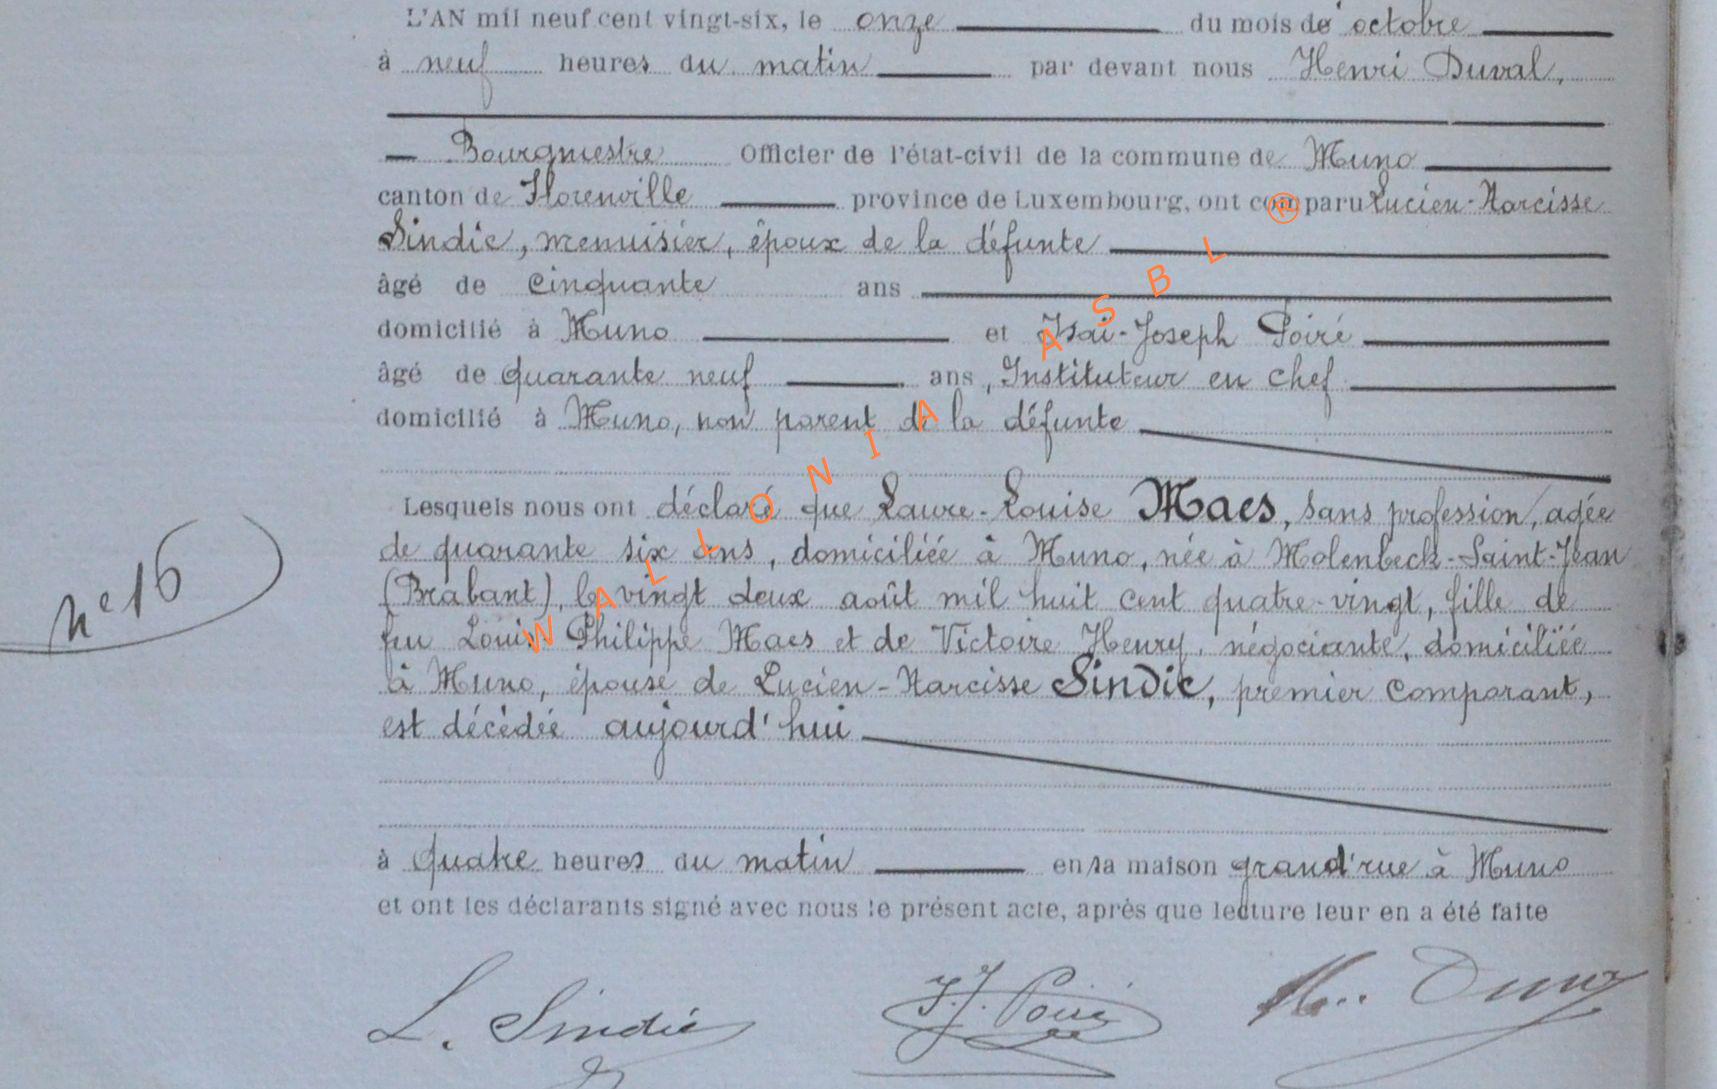 L'AN mil neuf cent vingt-six, le onze du mois de octobre
à neuf heures du matin par devant nous Henri Duval,
Bourgmestre Officier de l'état-civil de la commune de Muno
canton de Florenville province de Luxembourg, ont comparu Lucien-Narcisse
Sindic, menuisier, époux de la défunte
âgé de cinquante ans
domicilié à Muno et Isaï-Joseph Poiré
âgé de quarante neuf ans, Instituteur en chef
domicilié à Muno, non parent de la défunte
Lesquels nous ont déclaré que Laure-Louise Maes, sans profession, agée
de quarante six ans, domiciliée à Muno, née à Molenbeck-Saint-Jean
(Brabant), le vingt deux août mil huit cent quatre-vingt, fille de
feu Louis Philippe Maes et de Victoire Henry, négociante, domiciliée
n° 16
à Muno, épouse de Lucien-Narcisse Sindic, premier comparant,
est décédée aujourd'hui
à quatre heures du matin en sa maison grand'rue à Muno
et ont les déclarants signé avec nous le présent acte, après que lecture leur en a été faite
L. Sindic J.J. Poiré H. Duval
WALLONIA ASBL ®